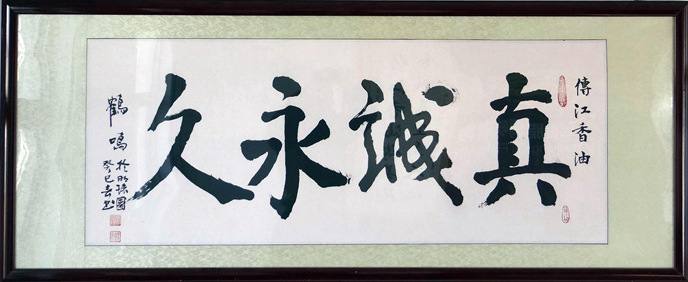 傳江香油
真誠永久
鶴鳴
於明珠園
癸巳春書